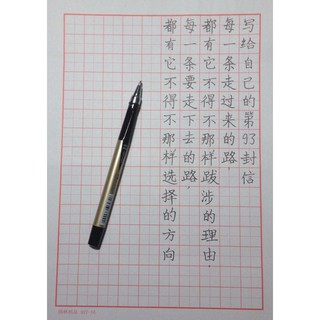 写给自己的第93封信
每一条走过来的路，
都有它不得不那样跋涉的理由．
每一条要走下去的路，
都有它不得不那样选择的方向